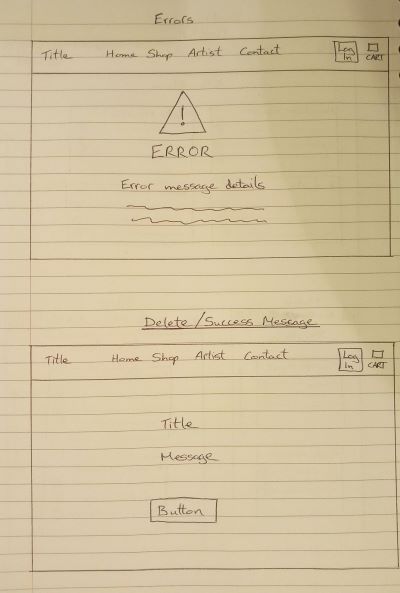 Errors
Title Home Shop Artist Contact Log In CART
!
ERROR
Error message details
Delete/Success Message
Title Home Shop Artist Contact Log In CART
Title
Message
Button